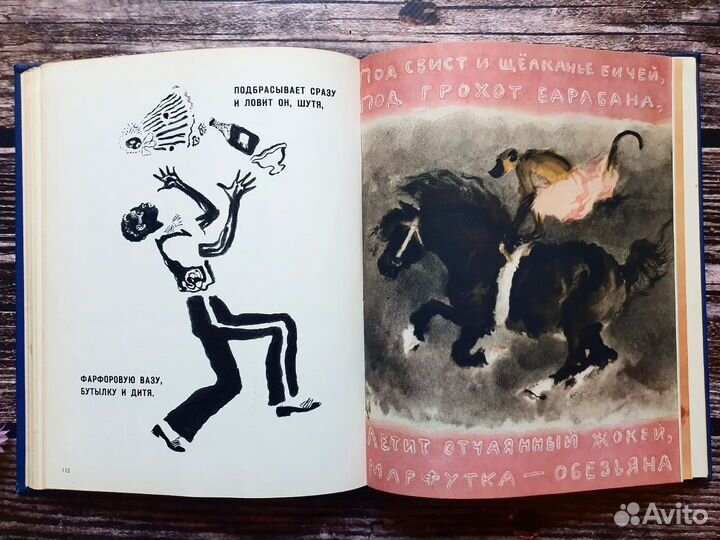 ПОДБРАСЫВАЕТ СРАЗУ
И ЛОВИТ ОН, ШУТЯ,
ФАРФОРОВУЮ ВАЗУ,
БУТЫЛКУ И ДИТЯ.
112
ПОД СВИСТ И ЩЁЛКАНЬЕ БИЧЕЙ,
ПОД ГРОХОТ БАРАБАНА,
ЛЕТИТ ОТЧАЯННЫЙ ЖОКЕЙ,
МАРФУТКА — ОБЕЗЬЯНА
Avito